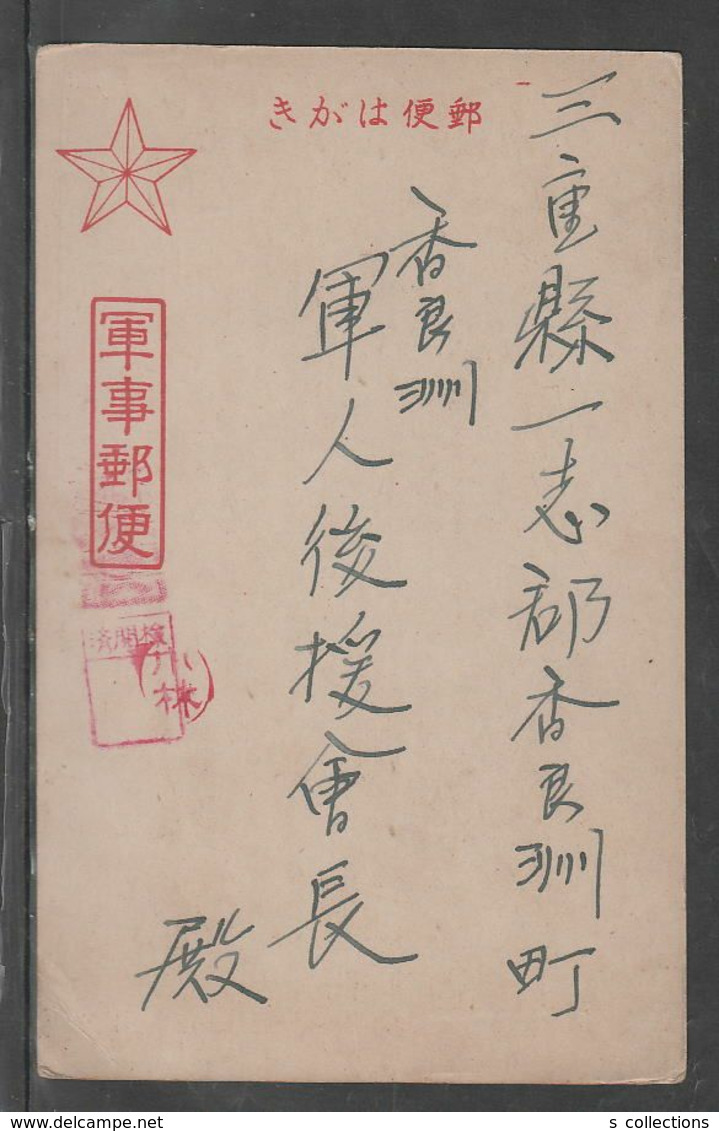 郵便はがき
三重縣一志郡香良洲町
香良洲
軍人後援會長
殿
軍事郵便
検閲済
小林
s collections